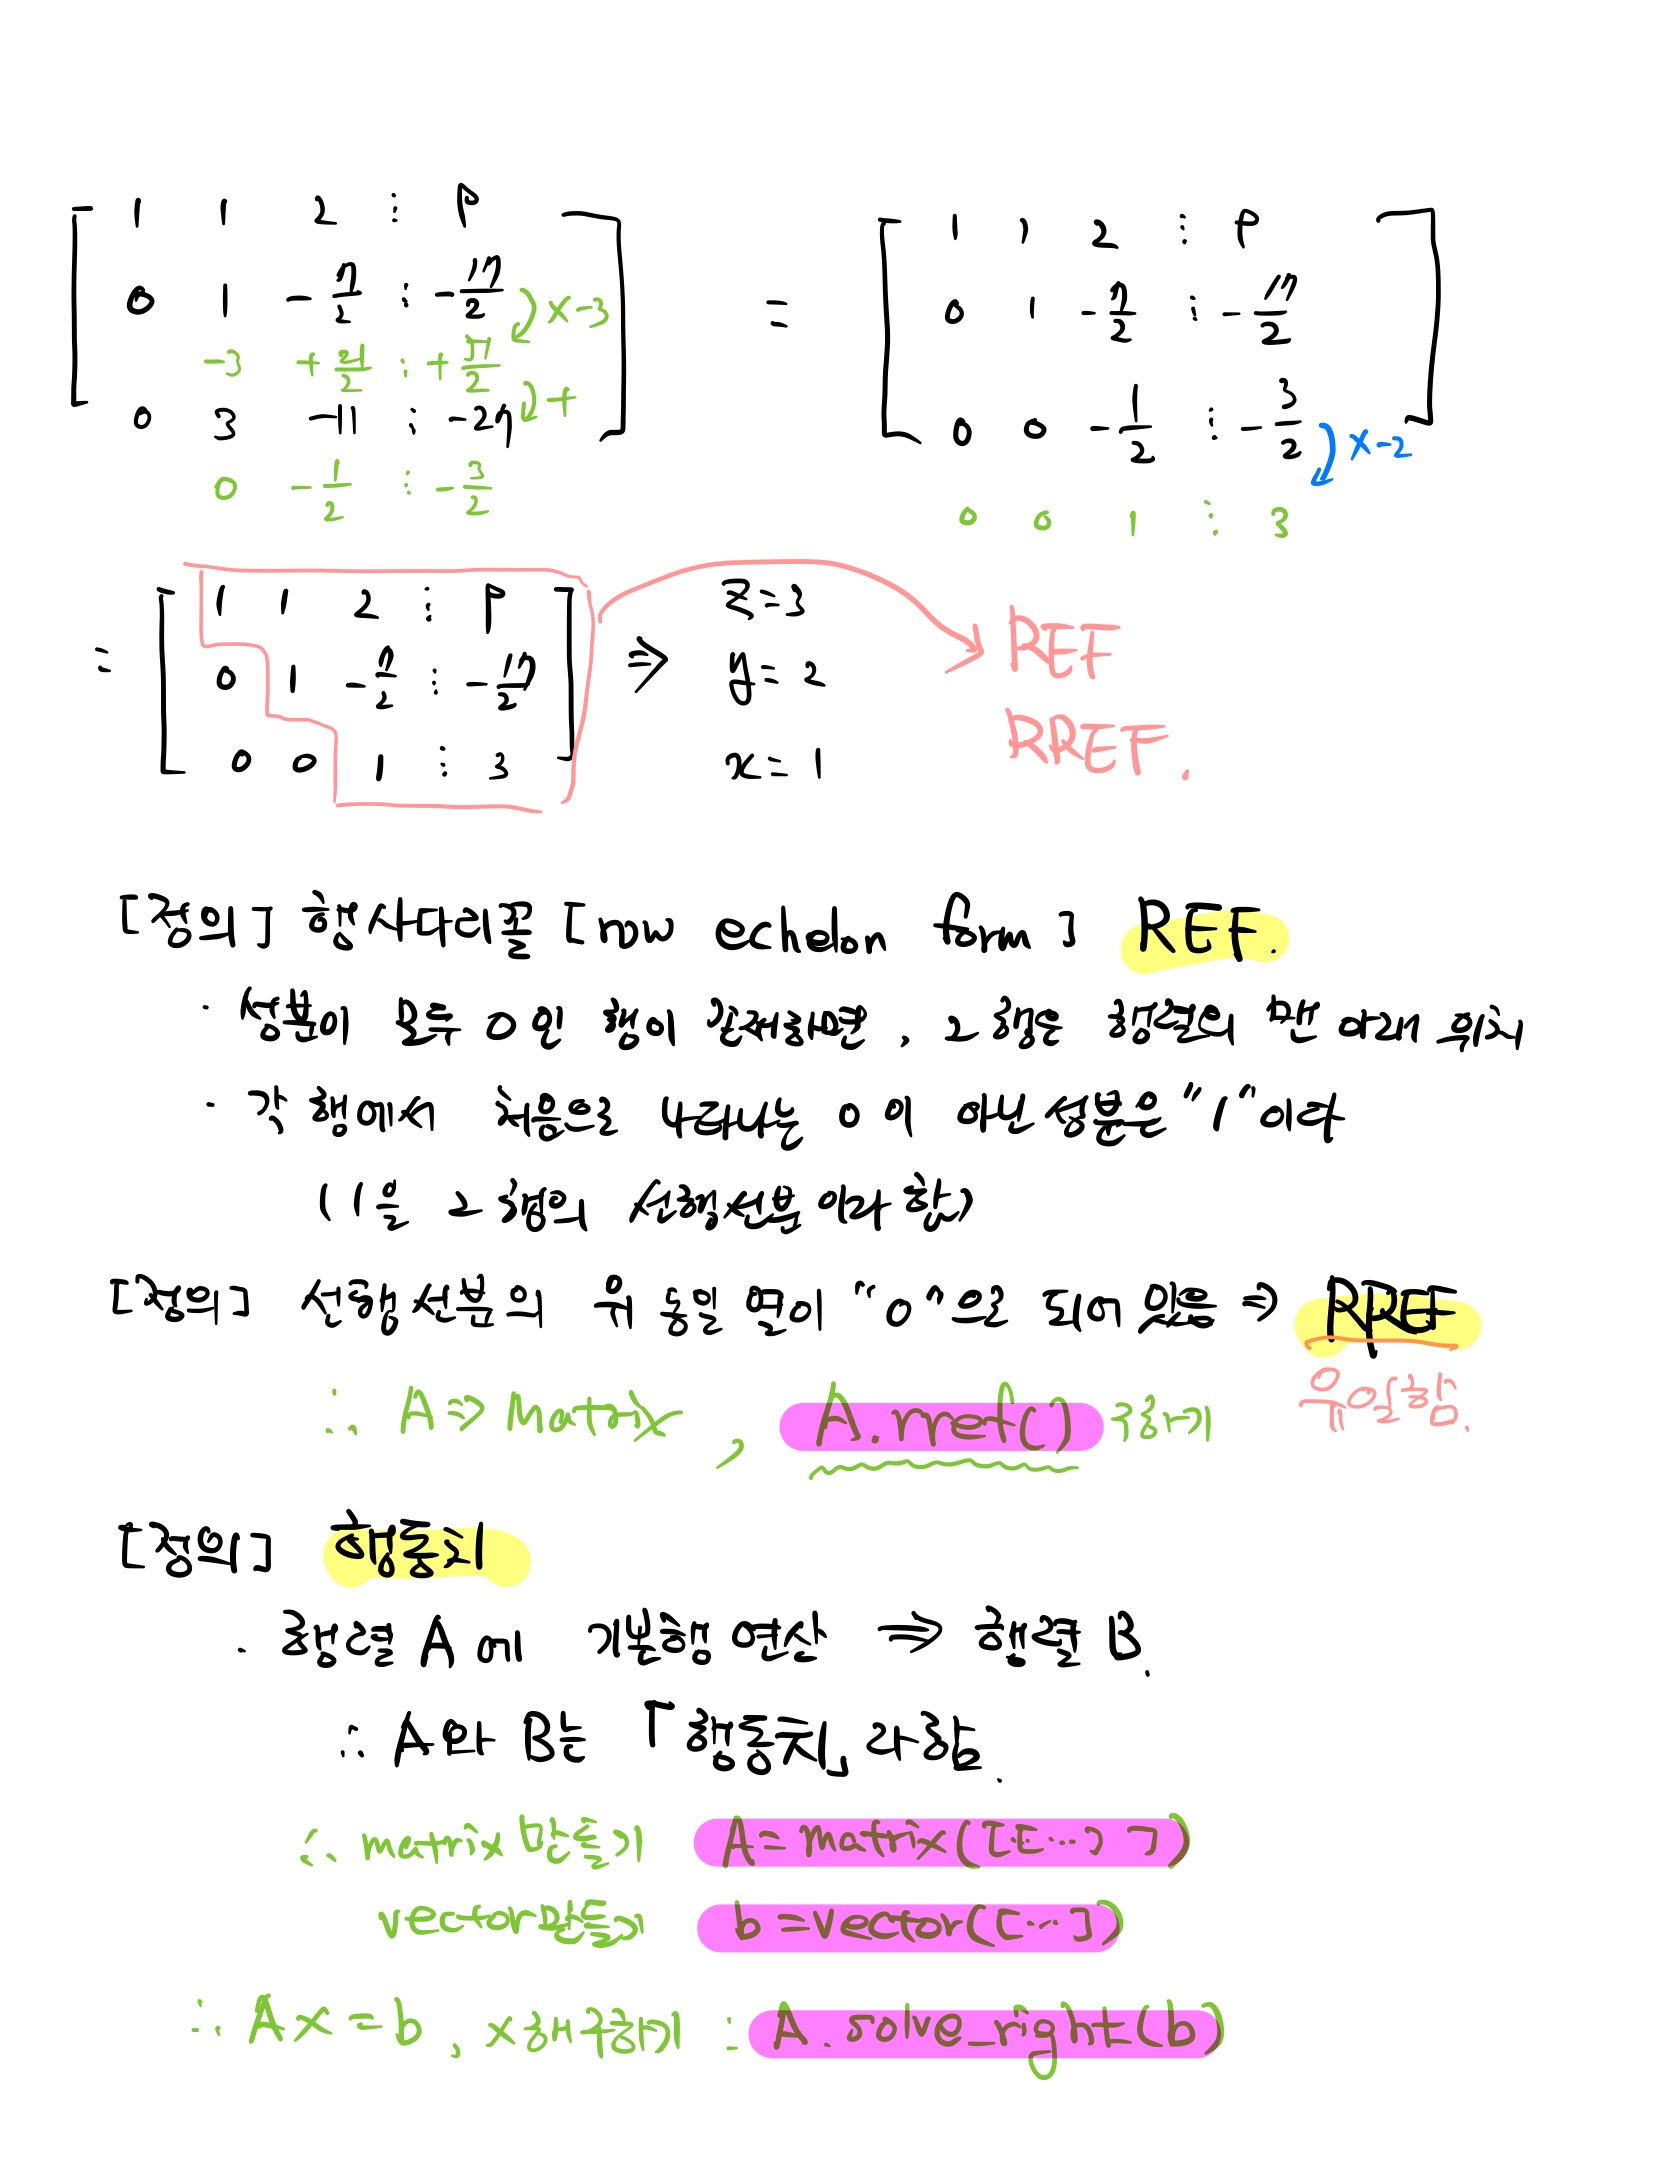 1 1 2 ⋮ 9 = 1 1 2 ⋮ 9
0 1 -7/2 ⋮ -17/2 ×-3 0 1 -7/2 ⋮ -17/2
-3 +21/2 ⋮ +51/2 +
0 3 -11 ⋮ -27 0 0 -1/2 ⋮ -3/2 ×-2
0 -1/2 ⋮ -3/2 0 0 1 ⋮ 3
= 1 1 2 ⋮ 9 ⇒ z=3 REF
0 1 -7/2 ⋮ -17/2 y=2 RREF.
0 0 1 ⋮ 3 x=1
[정의] 행사다리꼴 [row echelon form] REF.
· 성분이 모두 0인 행이 존재하면, 그 행은 행렬의 맨 아래 위치
· 각 행에서 처음으로 나타나는 0이 아닌 성분은 "1"이다
(1을 그 행의 선행선분이라 함)
[정의] 선행선분의 위 동일 열이 "0"으로 되어 있음 ⇒ RREF
유일함.
∴ A ⇒ Matrix, A.rref() 구하기
[정의] 행동치
· 행렬 A에 기본행 연산 ⇒ 행렬 B.
∴ A와 B는 「행동치」라 함.
∴ matrix 만들기 A=matrix([[…] ])
vector만들기 b=vector([…])
∴ Ax=b, x해 구하기 : A.solve_right(b)